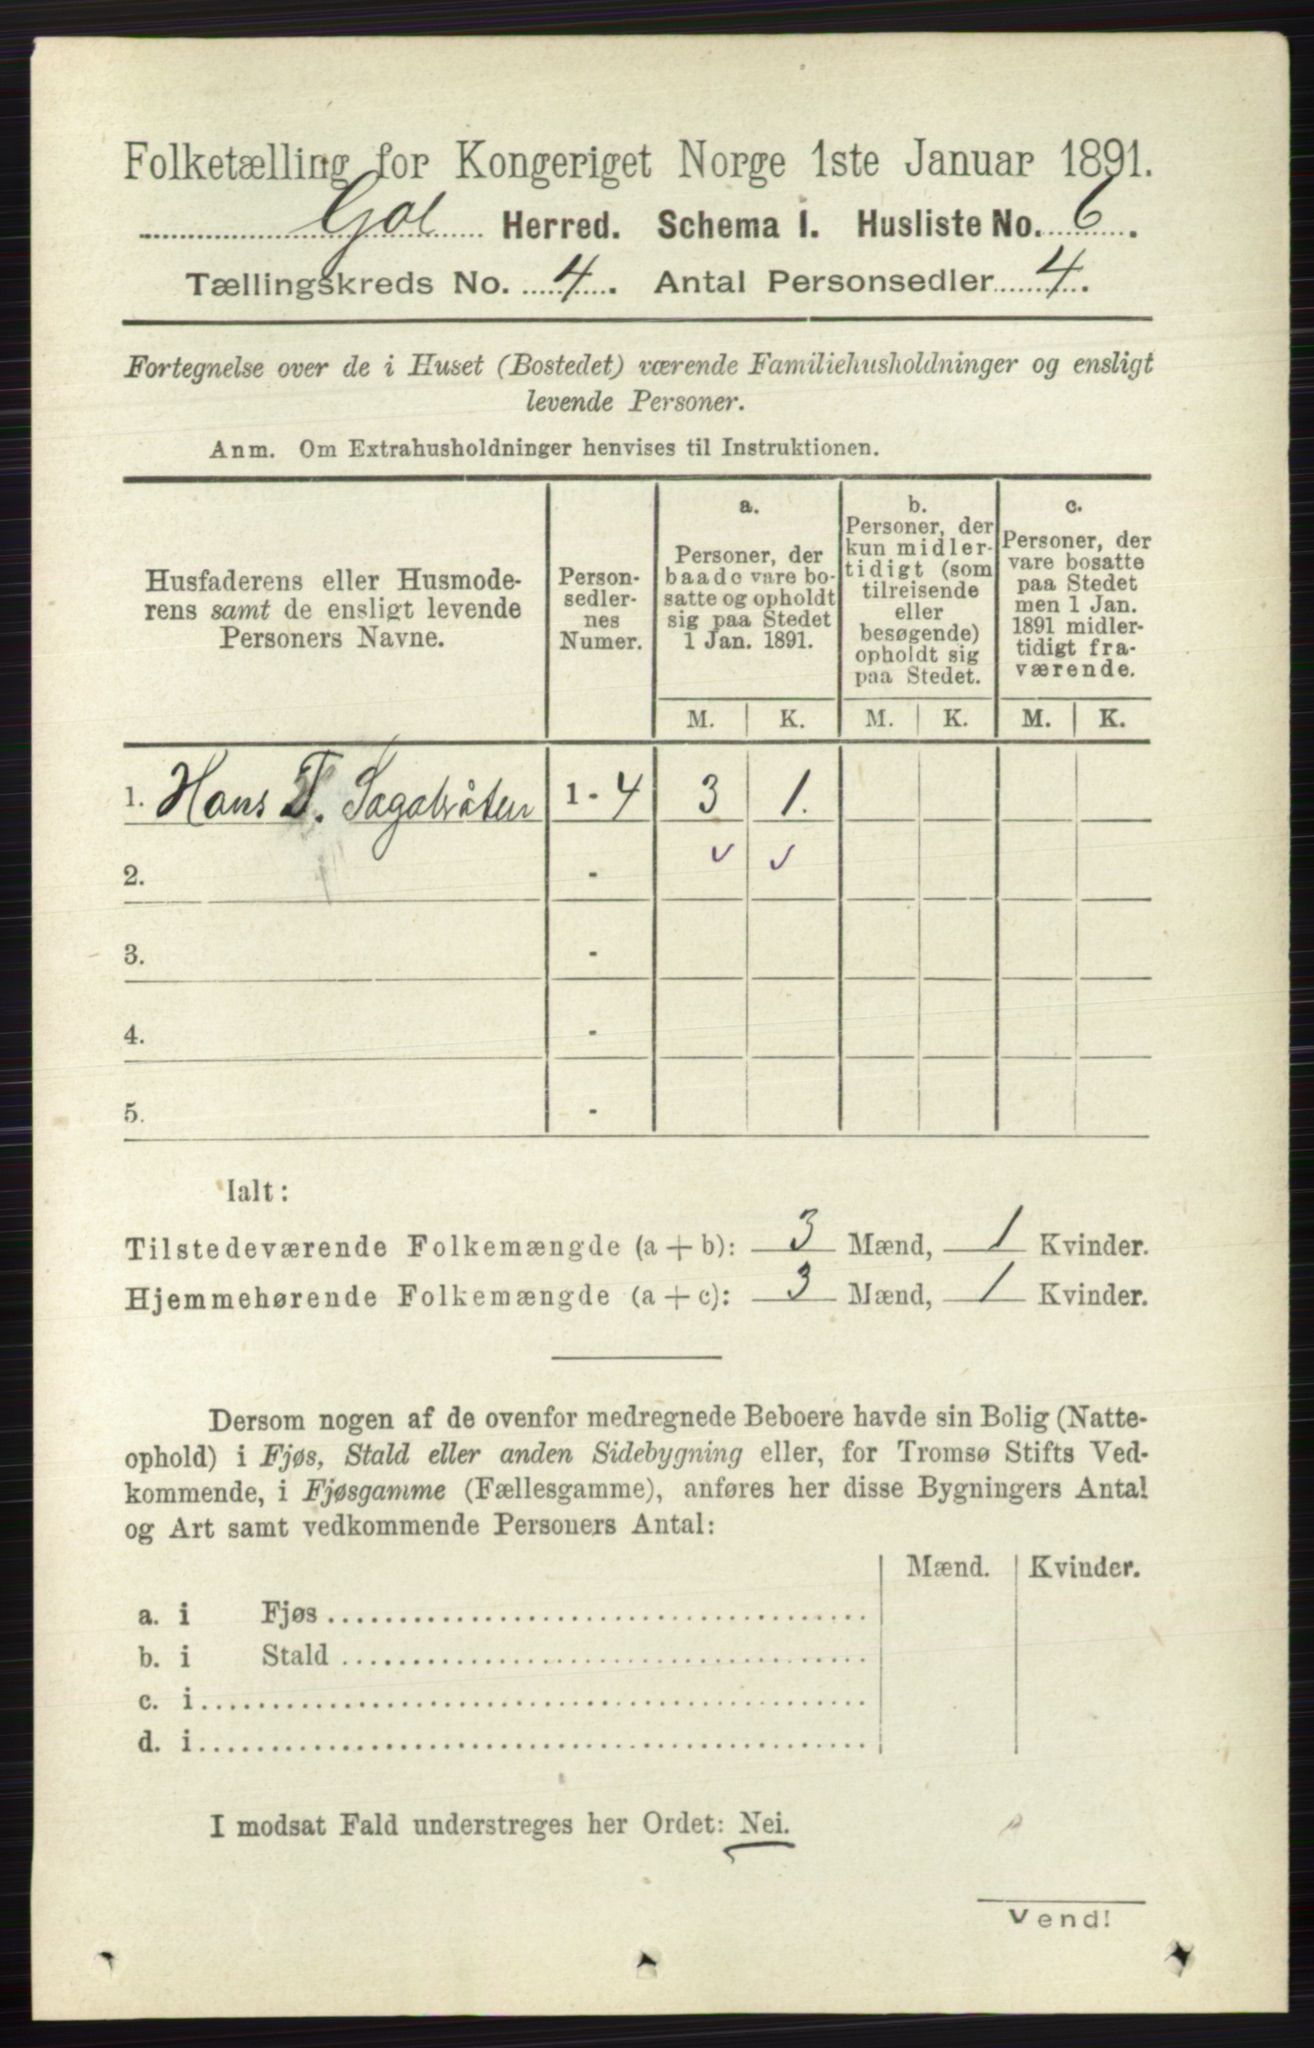 Folketælling for Kongeriget Norge 1ste Januar 1891.
Gol Herred. Schema I. Husliste No. 6.
Tællingskreds No. 4. Antal Personsedler 4.
Fortegnelse over de i Huset (Bostedet) værende Familiehusholdninger og ensligt
levende Personer.
Anm. Om Extrahusholdninger henvises til Instruktionen.
Husfaderens eller Husmode-
rens samt de ensligt levende
Personers Navne.
Person-
sedler-
nes
Numer.
a.
Personer, der
baade vare bo-
satte og opholdt
sig paa Stedet
1 Jan. 1891.
b.
Personer, der
kun midler-
tidigt (som
tilreisende
eller
besøgende)
opholdt sig
paa Stedet.
c.
Personer, der
vare bosatte
paa Stedet
men 1 Jan.
1891 midler-
tidigt fra-
værende.
M. K. M. K. M. K.
1. Hans T. 1 - 4 3 1.
2. -
3. -
4. -
5. -
Ialt:
Tilstedeværende Folkemængde (a + b): 3 Mænd, 1 Kvinder.
Hjemmehørende Folkemængde (a + c): 3 Mænd, 1 Kvinder.
Dersom nogen af de ovenfor medregnede Beboere havde sin Bolig (Natte-
ophold) i Fjøs, Stald eller anden Sidebygning eller, for Tromsø Stifts Ved-
kommende, i Fjøsgamme (Fællesgamme), anføres her disse Bygningers Antal
og Art samt vedkommende Personers Antal:
Mænd. Kvinder.
a. i Fjøs
b. i Stald
c. i
d. i
I modsat Fald understreges her Ordet: Nei.
Vend!